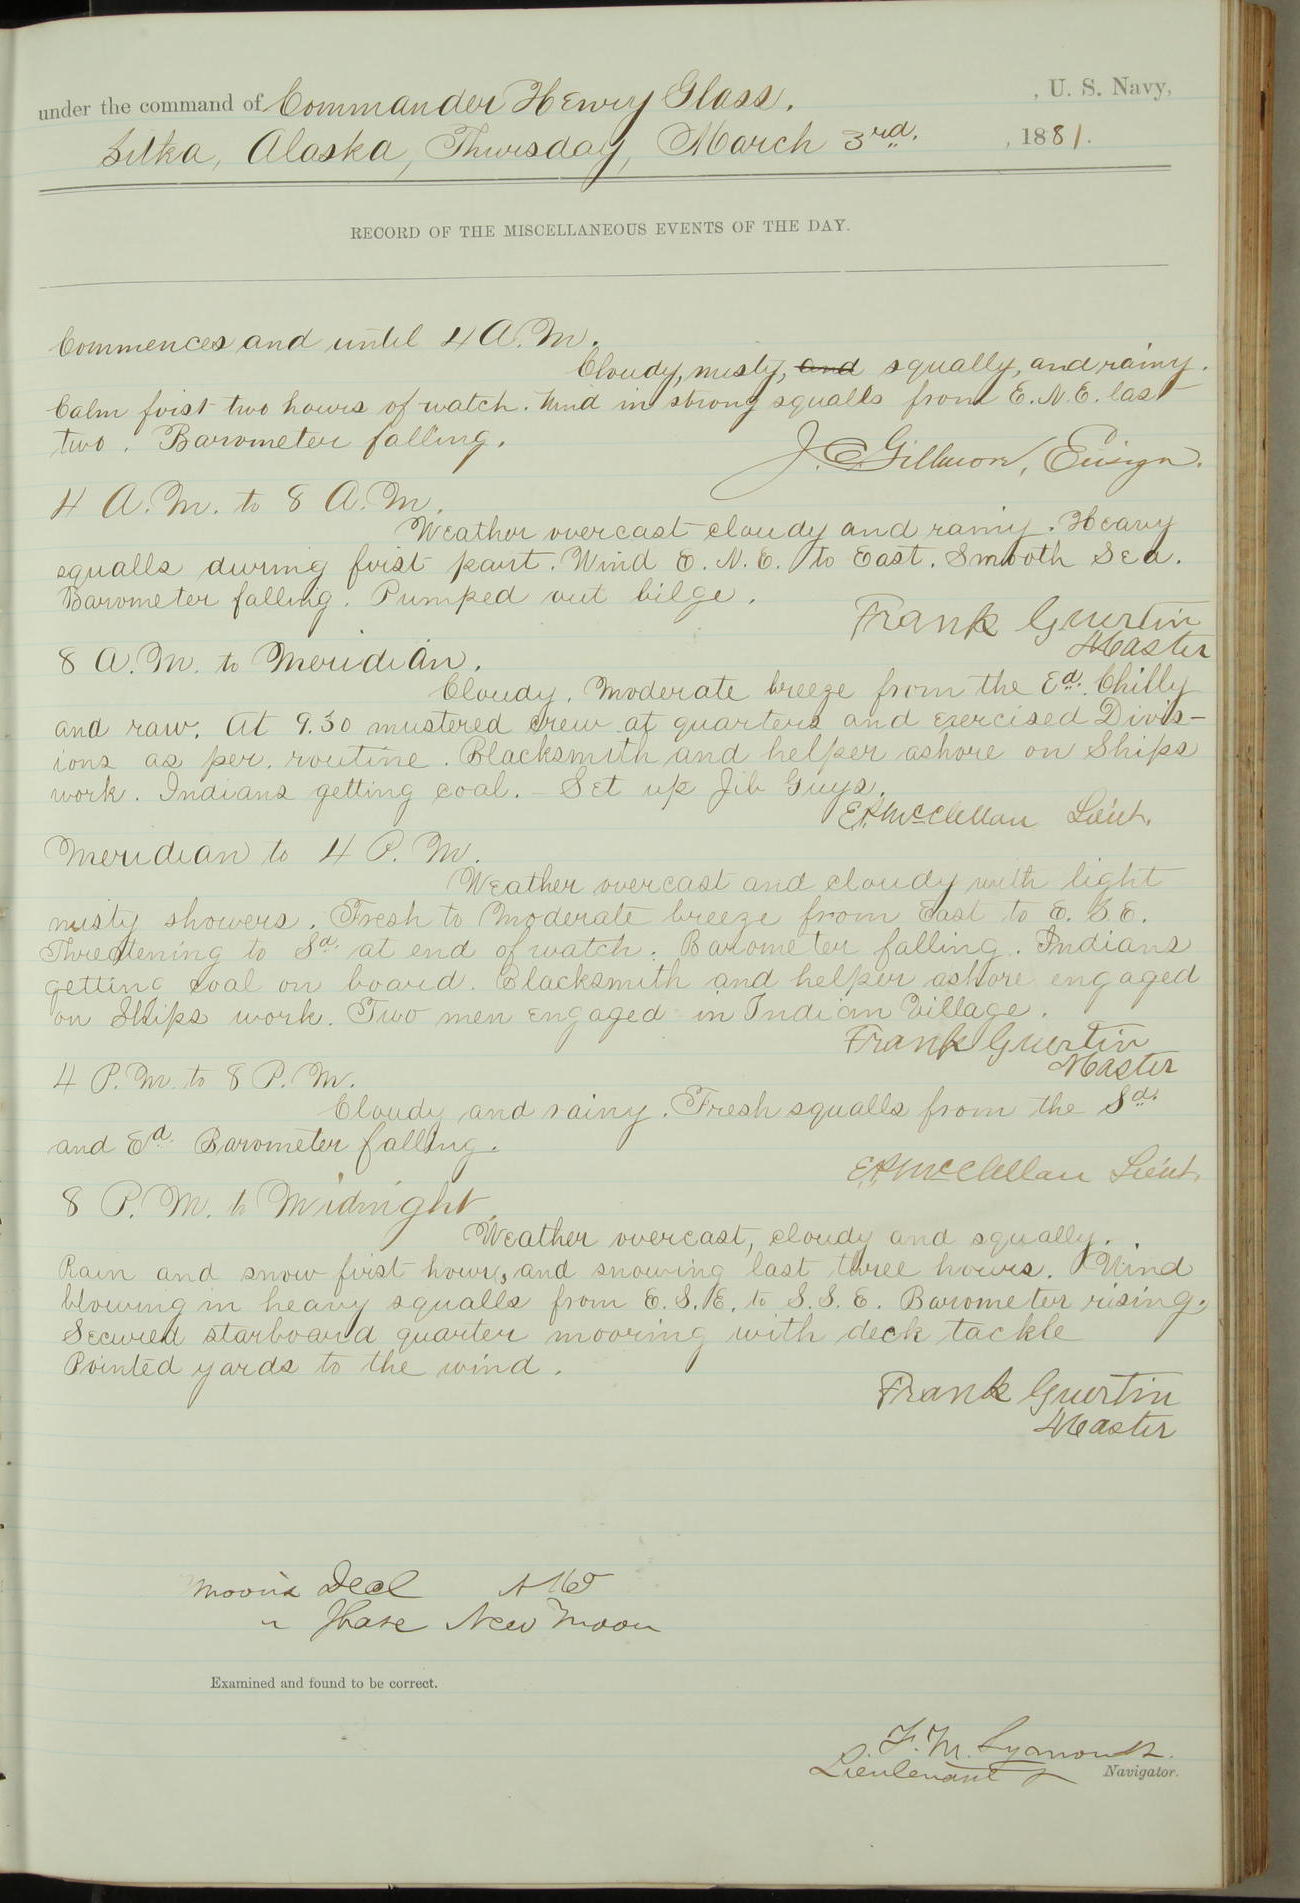 under the command of Commander Henry Glass. , U. S. Navy,
Sitka, Alaska, Thursday, March 3rd. , 1881.
RECORD OF THE MISCELLANEOUS EVENTS OF THE DAY.
Commences and until 4 A.M.
Cloudy, misty, and squally, and rainy.
Calm first two hours of watch. Wind in strong squalls from E.N.E. last
two. Barometer falling.
J. C. Gillmore, Ensign.
4 A.M. to 8 A.M.
Weather overcast cloudy and rainy. Heavy
squalls during first part. Wind E.N.E. to East. Smooth Sea.
Barometer falling. Pumped out bilge.
Frank Guertin
Master
8 A.M. to Meridian.
Cloudy. Moderate breeze from the Ed. Chilly
and raw. At 9.30 mustered crew at quarters and exercised Divis-
ions as per. routine. Blacksmith and helper ashore on Ships
work. Indians getting coal. - Set up Jib Guys.
E.P. McClellan Lieut.
Meridian to 4 P.M.
Weather overcast and cloudy with light
misty showers. Fresh to Moderate breeze from East to E.S.E.
Threatening to Sd. at end of watch. Barometer falling. Indians
getting coal on board. Blacksmith and helper ashore engaged
on Ships work. Two men engaged in Indian Village.
Frank Guertin
Master
4 P.M. to 8 P.M.
Cloudy and rainy. Fresh squalls from the Sd.
and Ed. Barometer falling.
E.P. McClellan Lieut.
8 P.M. to Midnight.
Weather overcast, cloudy and squally.
Rain and snow first hour, and snowing last three hours. Wind
blowing in heavy squalls from E.S.E. to S.S.E. Barometer rising.
Secured starboard quarter mooring with deck tackle
Pointed yards to the wind.
Frank Guertin
Master
Moon's Decl
" Phase New Moon
Examined and found to be correct.
F. M. Symonds.
Lieutenant & Navigator.